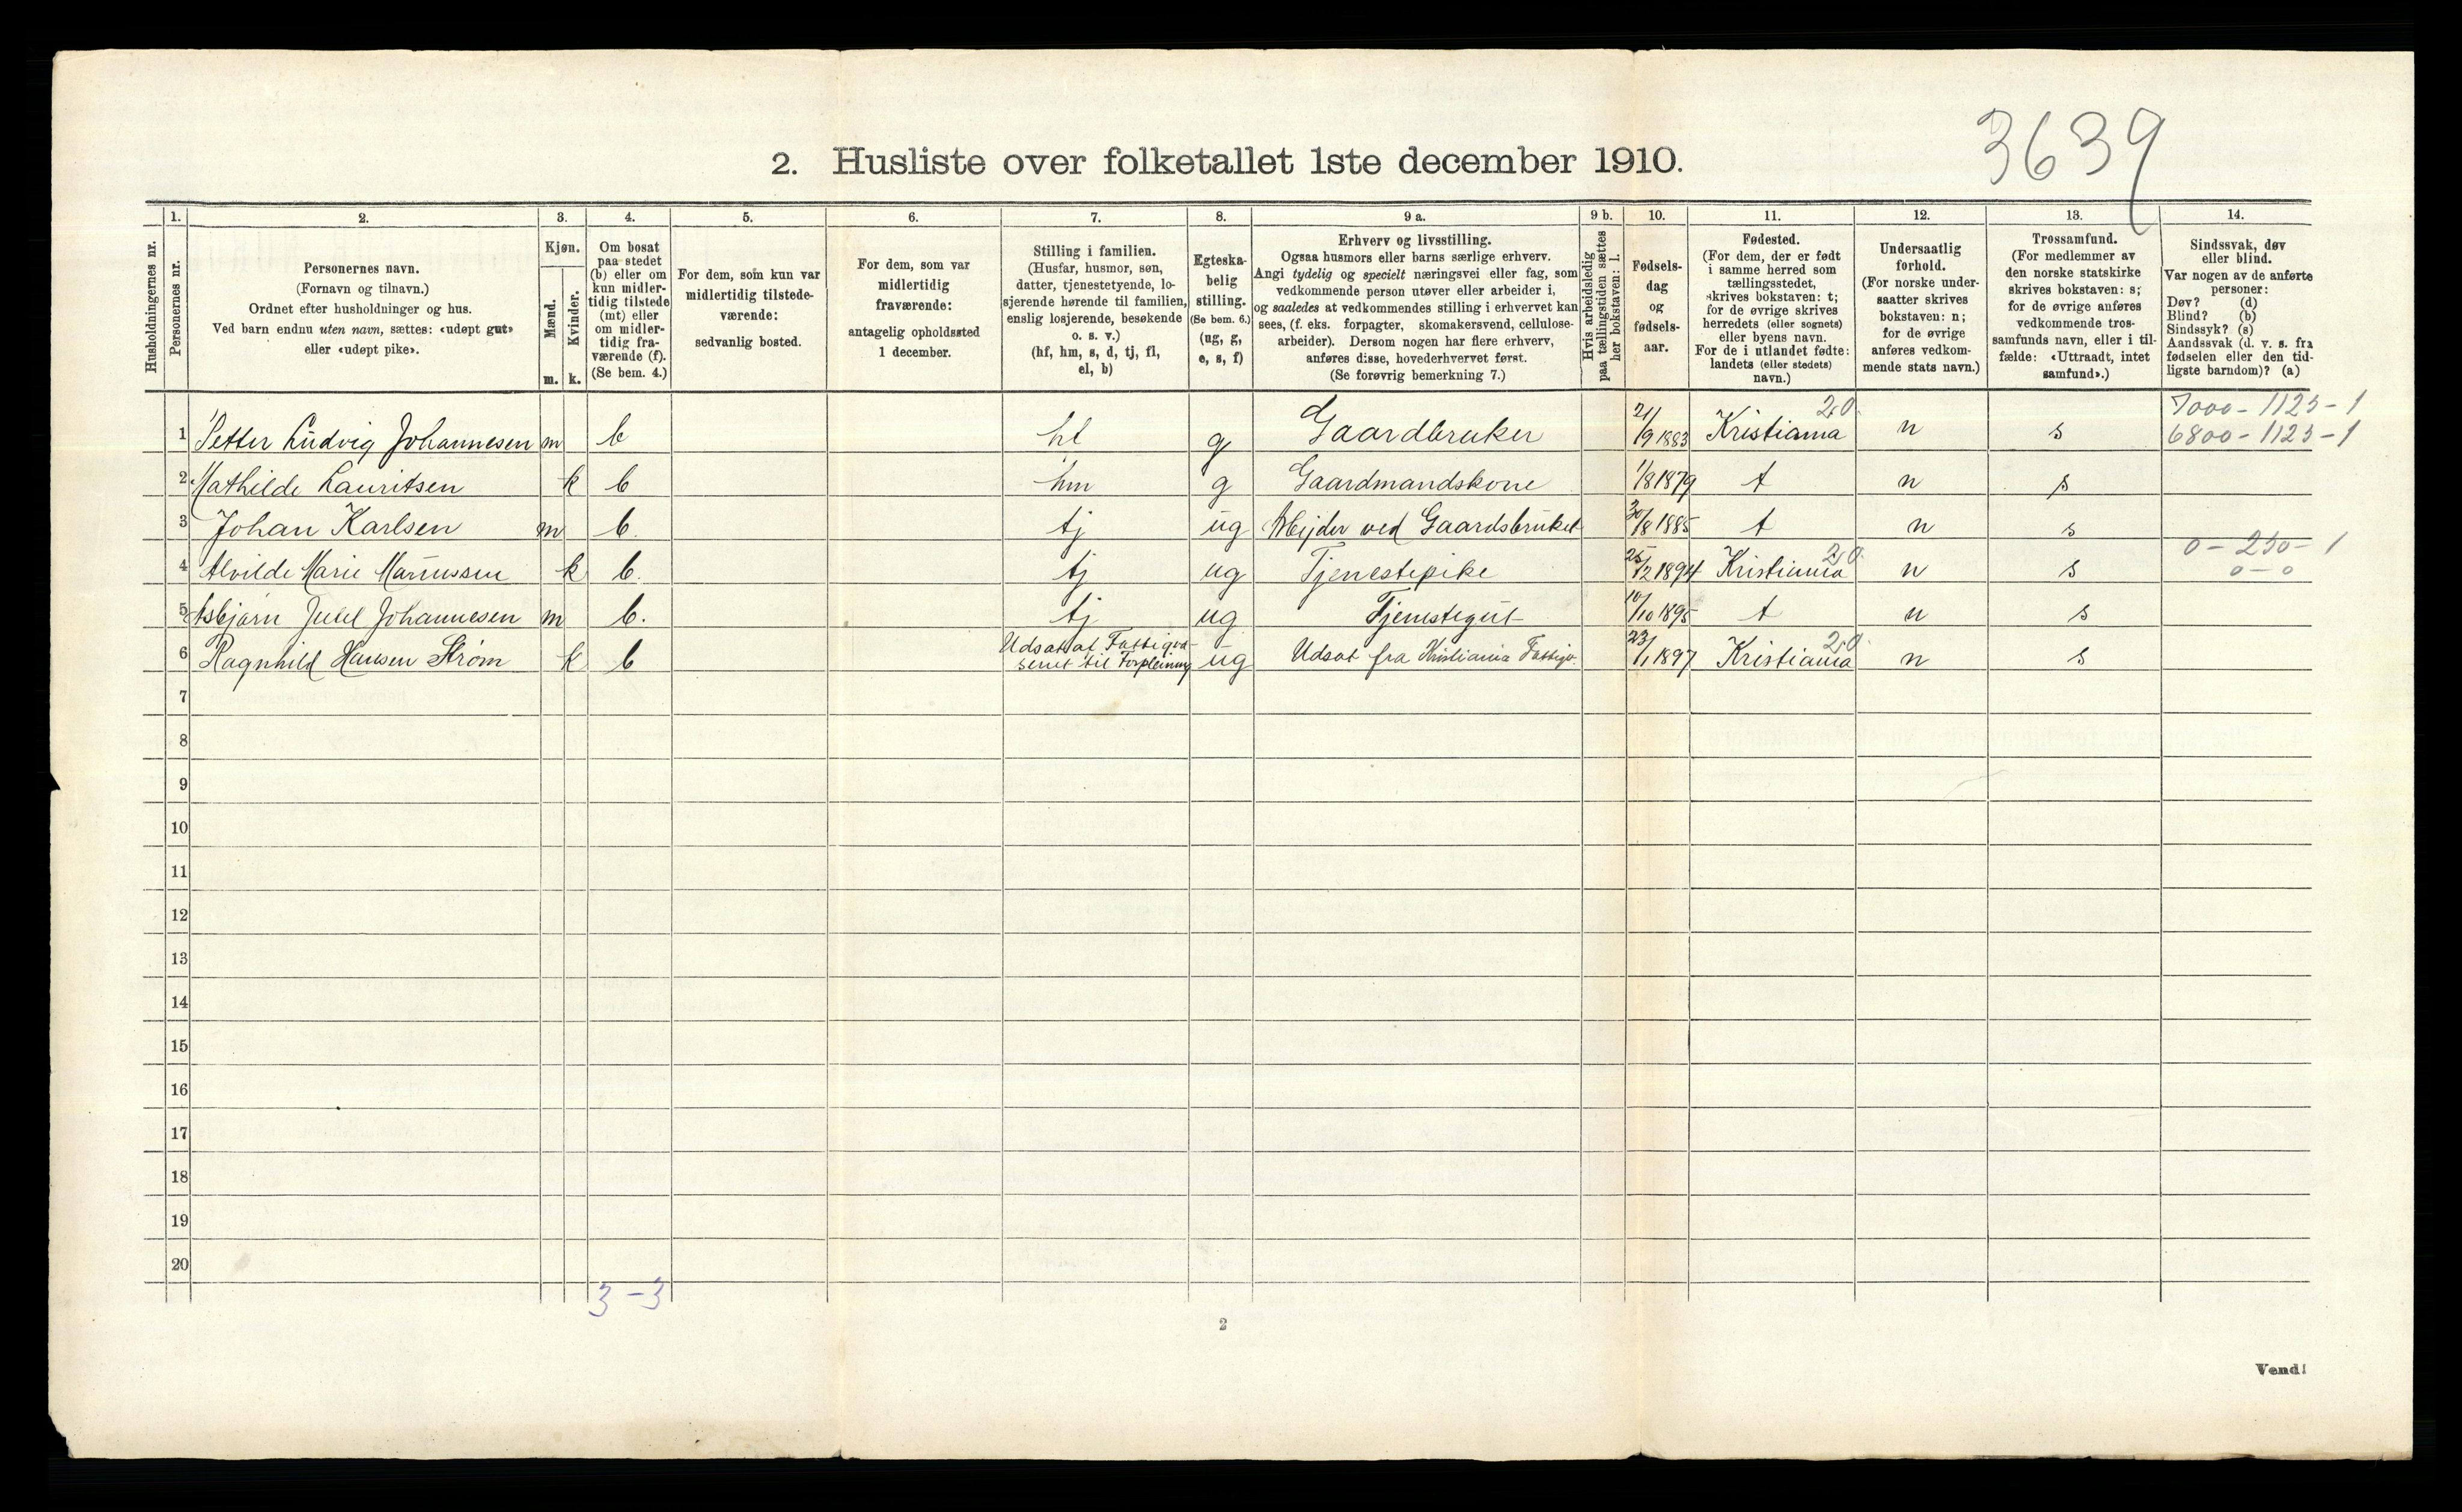 3639
2. Husliste over folketallet 1ste december 1910.
Husholdningernes nr.
1.
Personernes nr.
2.
Personernes navn.
(Fornavn og tilnavn.)
Ordnet efter husholdninger og hus.
Ved barn endnu uten navn, sættes: «udøpt gut»
eller «udøpt pike».
3.
Kjøn.
Mænd.
Kvinder.
m. k.
4.
Om bosat
paa stedet
(b) eller om
kun midler-
tidig tilstede
(mt) eller
om midler-
tidig fra-
værende (f).
(Se bem. 4.)
5.
For dem, som kun var
midlertidig tilstede-
værende:
sedvanlig bosted.
6.
For dem, som var
midlertidig
fraværende:
antagelig opholdssted
1 december.
7.
Stilling i familien.
(Husfar, husmor, søn,
datter, tjenestetyende, lo-
sjerende hørende til familien,
enslig losjerende, besøkende
o. s. v.)
(hf, hm, s, d, tj, fl,
el, b)
8.
Egteska-
belig
stilling.
(Se bem. 6.)
(ug, g,
e, s, f)
9 a.
Erhverv og livsstilling.
Ogsaa husmors eller barns særlige erhverv.
Angi tydelig og specielt næringsvei eller fag, som
vedkommende person utøver eller arbeider i,
og saaledes at vedkommendes stilling i erhvervet kan
sees, (f. eks. forpagter, skomakersvend, cellulose-
arbeider). Dersom nogen har flere erhverv,
anføres disse, hovederhvervet først.
(Se forøvrig bemerkning 7.)
9 b.
Hvis arbeidsledig
paa tællingstiden sættes
her bokstaven: l.
10.
Fødsels-
dag
og
fødsels-
aar.
11.
Fødested.
(For dem, der er født
i samme herred som
tællingsstedet,
skrives bokstaven: t;
for de øvrige skrives
herredets (eller sognets)
eller byens navn.
For de i utlandet fødte:
landets (eller stedets)
navn.)
12.
Undersaatlig
forhold.
(For norske under-
saatter skrives
bokstaven: n;
for de øvrige
anføres vedkom-
mende stats navn.)
13.
Trossamfund.
(For medlemmer av
den norske statskirke
skrives bokstaven: s;
for de øvrige anføres
vedkommende tros-
samfunds navn, eller i til-
fælde: «Uttraadt, intet
samfund».)
14.
Sindssvak, døv
eller blind.
Var nogen av de anførte
personer:
Døv? (d)
Blind? (b)
Sindssyk? (s)
Aandssvak (d. v. s. fra
fødselen eller den tid-
ligste barndom)? (a)
1 Petter Ludvig Johannesen m b hf g Gaardbruker 21/9 1883 Kristiania 2,0 n s 7000-1125-1
6800-1125-1
2 Mathilde Lauritsen k b hm g Gaardmandskone 1/8 1879 t n s
3 Johan Karlsen m b. tj ug Arbejder ved Gaardsbruket 30/8 1885 t n s
4 Alvilde Marie k b. tj ug Tjenestepike 25/12 1894 Kristiania 2,0 n s 0-250-1
0-0
5 Asbjørn Juul Johannesen m b. tj ug Tjenestegut 10/10 1895 t n s
6 Ragnhild Hansen Strøm k b Udsat af Fattigvæ-
senet til Forpleining ug Udsat fra Kristiania Fattigv. 23/1 1897 Kristiania 2,0 n s
7
8
9
10
11
12
13
14
15
16
17
18
19
20
3-3
2
Vend!